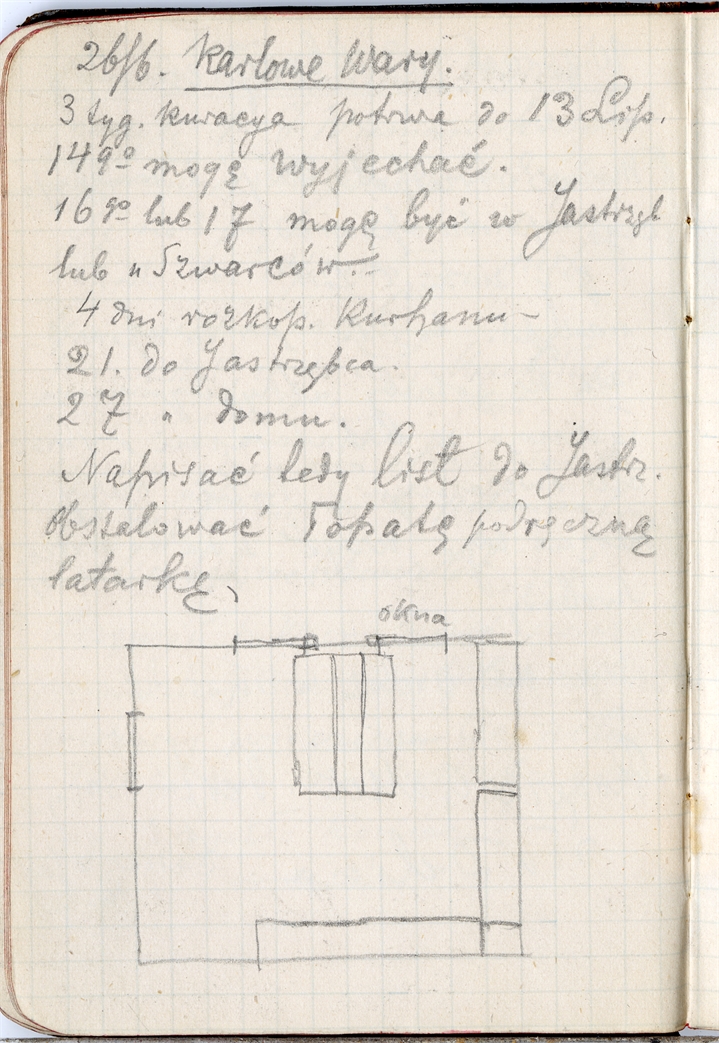 26/6. Karlowe Wary.
3 tyg. kuracya potrwa do 13 Lip.
14go mogę wyjechać.
16go lub 17 mogę być w Jastrzęb
lub u Szwarców.
4 dni rozkop. Kurhanu –
21. do Jastrzębca.
27 " domu.
Napisać tedy list do Jastrz.
obstalować łopatę podręczną
latarkę,
okna